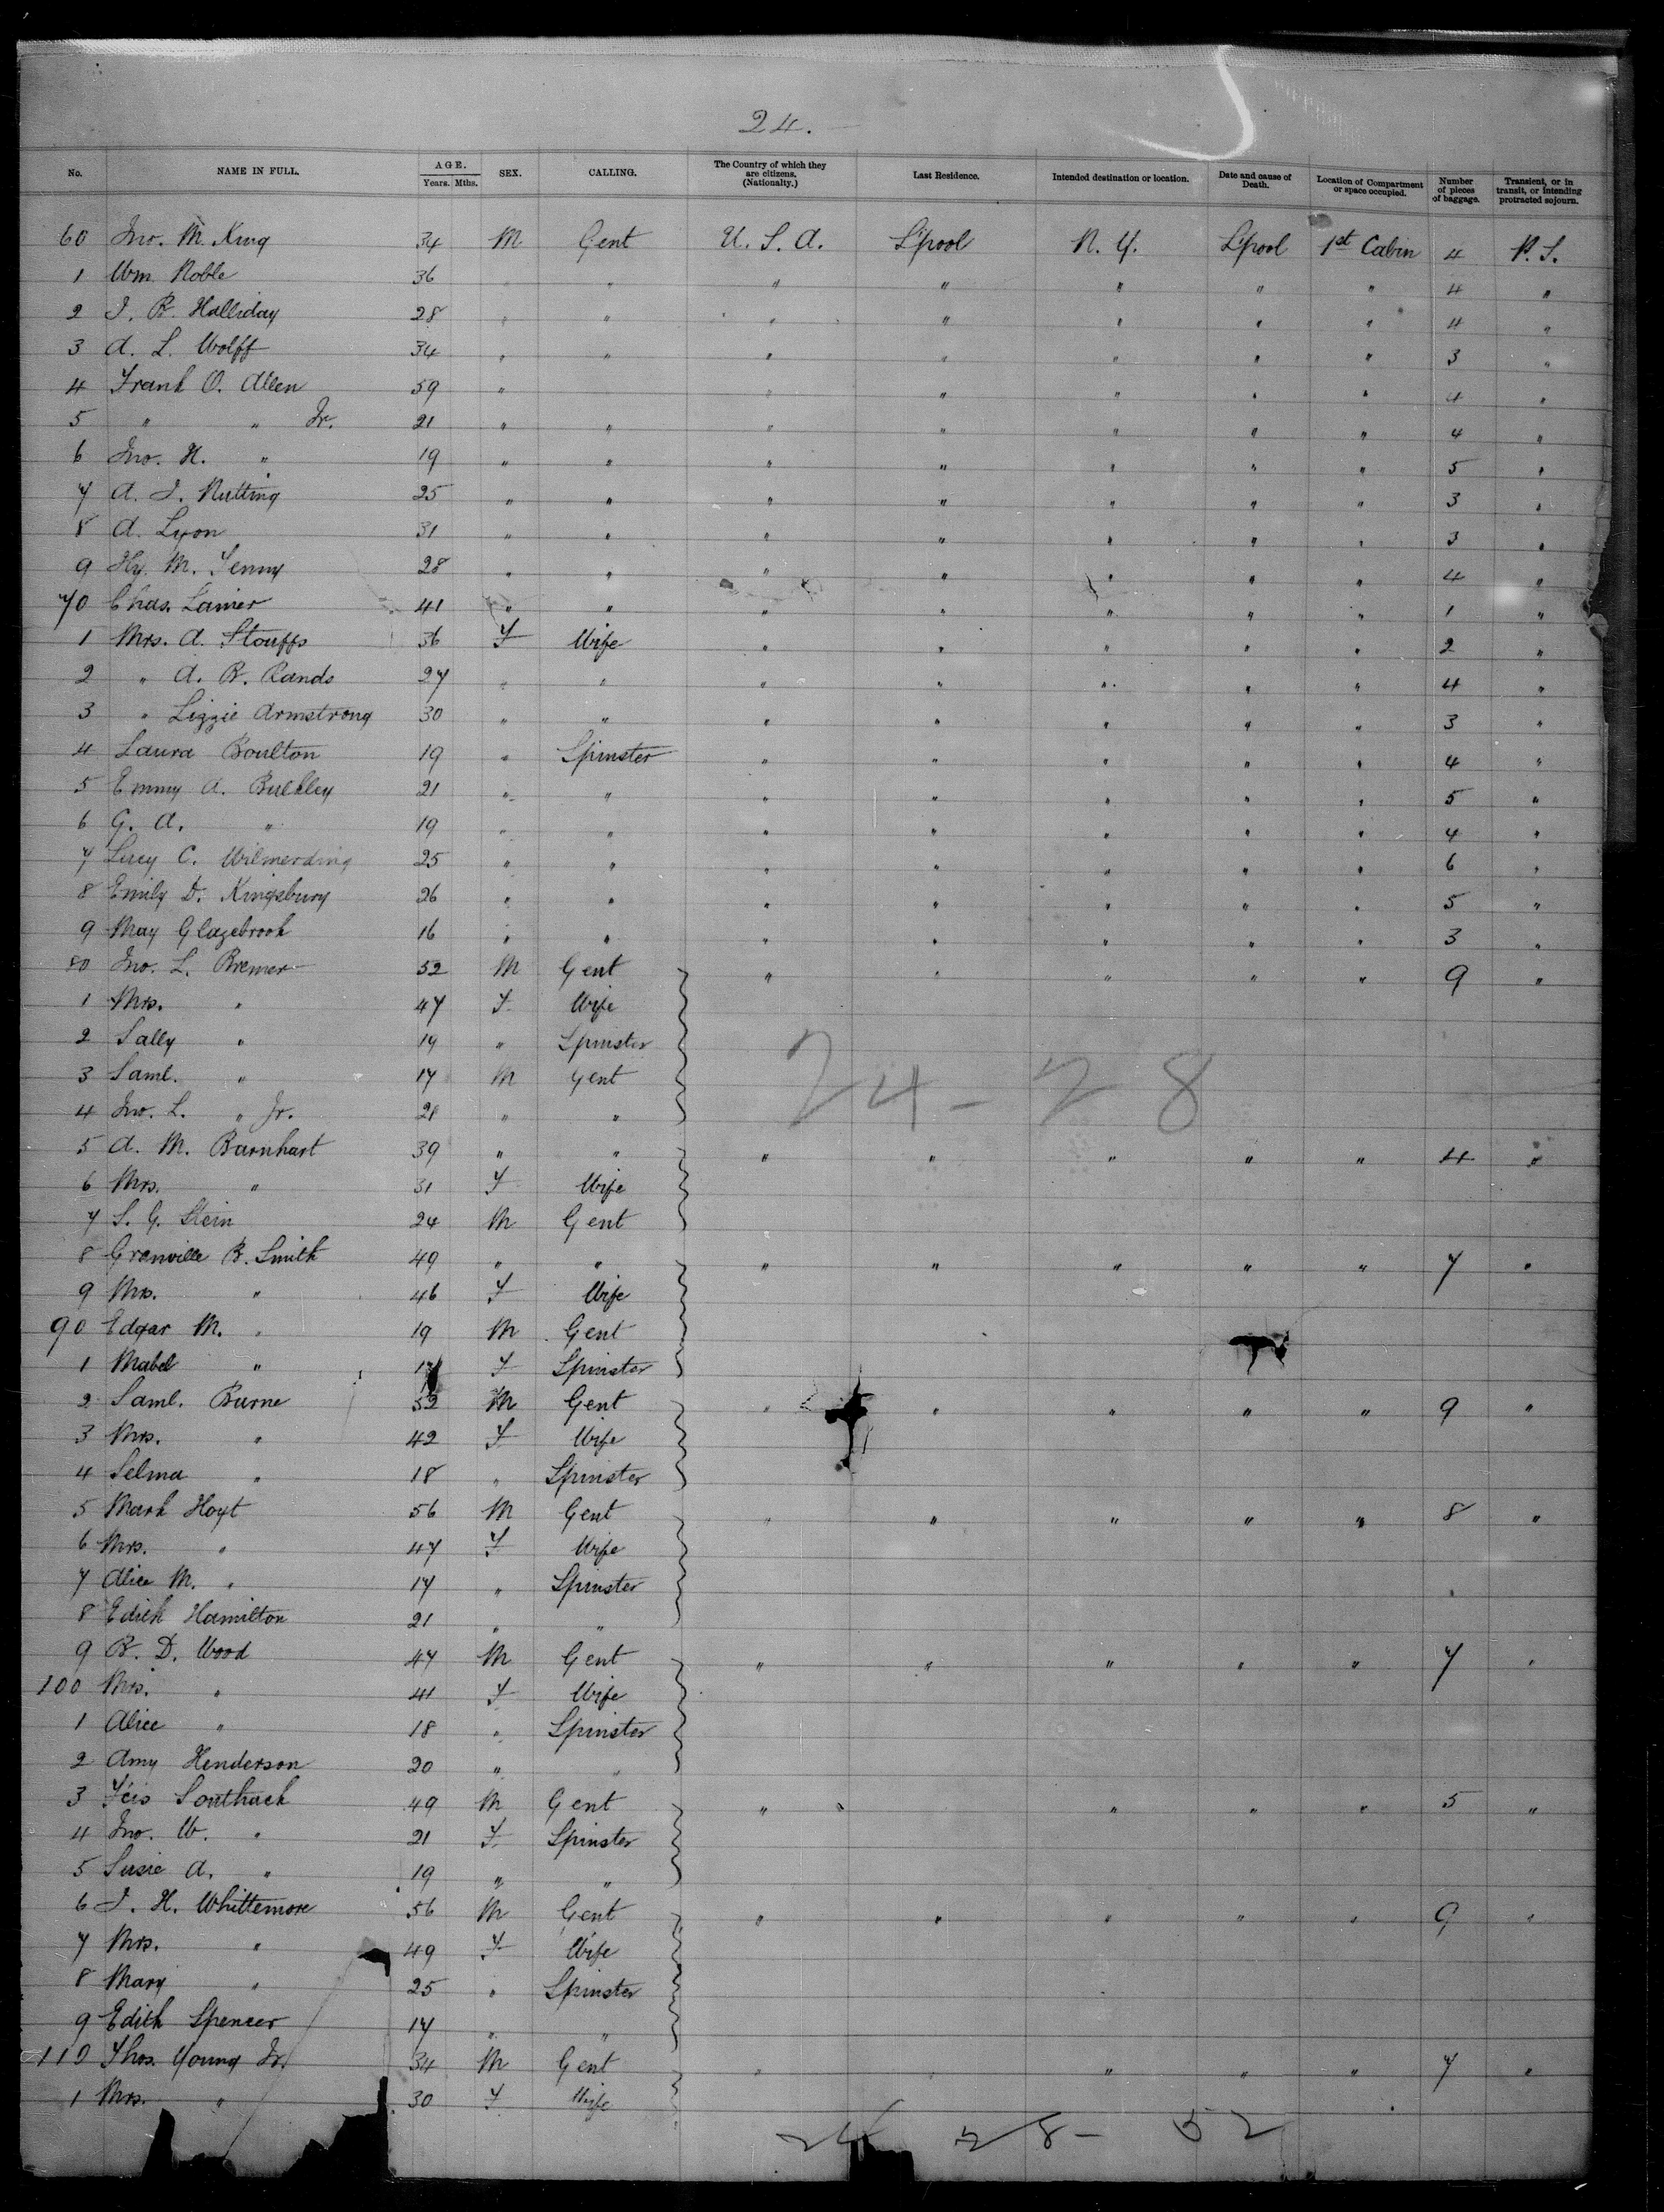 24.
No. NAME IN FULL. AGE. Years. Mths. SEX. CALLING. The Country of which they are citizens. (Nationalty.) Last Residence. Intended destination or location. Date and cause of Death. Location of Compartment or space occupied. Number of pieces of baggage. Transient, or in transit, or intending protracted sojourn.
60 Jno. M. King 34 M Gent U. S. A. L'pool N. Y. L'pool 1st Cabin 4 P. S.
1 Wm Noble 36 " " " " " " " 4 "
2 J. R. Halliday 28 " " " " " " " 4 "
3 A. L. Wolff 34 " " " " " " " 3 "
4 Frank O. Allen 59 " " " " " " 4 "
5 " " Jr. 21 " " " " " " " 4 "
6 Jno. H. " 19 " " " " " " " 5 "
7 A. J. Nutting 25 " " " " " " " 3 "
8 A. Lyon 31 " " " " " " " 3 "
9 Hy. M. 28 " " " " " " " 4 "
70 Chas. Lanier 41 " " " " " " " 1 "
1 Mrs. A. Stouffs 36 F Wife " " " " " 2 "
2 " A. R. Rands 27 " " " " " " " 4 "
3 " Lizzie Armstrong 30 " " " " " " " 3 "
4 Laura Boulton 19 " Spinster " " " " " 4 "
5 Emmy A. Bulkley 21 " " " " " " " 5 "
6 G. A. " 19 " " " " " " " 4 "
7 Lucy C. Wilmerding 25 " " " " " " " 6 "
8 Emily D. Kingsbury 26 " " " " " " " 5 "
9 May Glazebrook 16 " " " " " " " 3 "
80 Jno. L. Bremer 52 M Gent " " " " " 9 "
1 Mrs. " 47 F Wife
2 Sally " 19 " Spinster
3 Saml. " 17 M Gent 24-28
4 Jno. L. " Jr. 21 " "
5 A. M. Barnhart 39 " " " " " " " 4 "
6 Mrs. " 31 F Wife
7 S. G. Stein 24 M Gent
8 Granville B. Smith 49 " " " " " " " 7 "
9 Mrs. " 46 F Wife
90 Edgar M. " 19 M Gent
1 Mabel " 17 F Spinster
2 Saml. Burne 52 M Gent " " " " " 9 "
3 Mrs. " 42 F Wife
4 Selma " 18 " Spinster
5 Mark Hoyt 56 M Gent " " " " " 8 "
6 Mrs. " 47 F Wife
7 Alice M. " 17 " Spinster
8 Edith Hamilton 21 " "
9 R. D. Wood 47 M Gent " " " " " 7 "
100 Mrs. " 41 F Wife
1 Alice " 18 " Spinster
2 Amy Henderson 20 " "
3 F'cis Southack 49 M Gent " " " " " 5 "
4 Jno. W. " 21 F Spinster
5 Susie A. " 19 " "
6 J. H. Whittemore 56 M Gent " " " " " 9 "
7 Mrs. " 49 F Wife
8 Mary " 25 " Spinster
9 Edith Spencer 17 " "
110 Thos. Young Jr. 34 M Gent " " " " " 7 "
1 Mrs. " 30 F Wife
24 28- 52